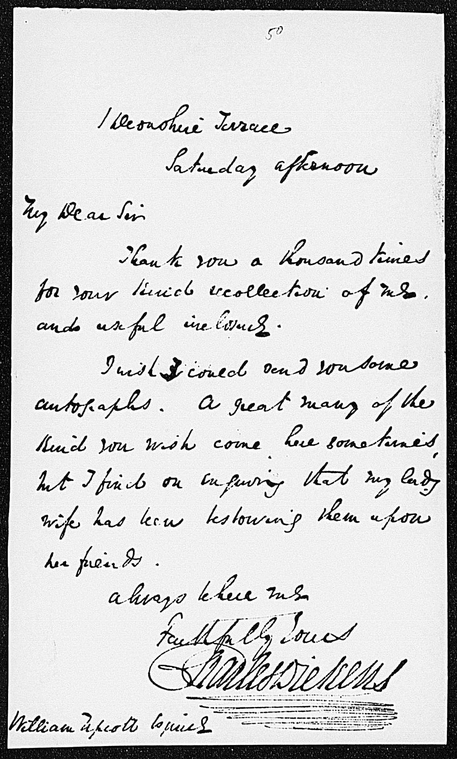 50
1 Devonshire Terrace
Saturday afternoon
My Dear Sir
Thank you a thousand times
for your kind recollection of me,
and useful inclosure.
I wish I could send you some
autographs. A great many of the
kind you wish come here sometimes,
but I find on enquiring that my lady
wife has been bestowing them upon
her friends.
always believe me
Faithfully Yours
Charles Dickens
William Upcott Esquire